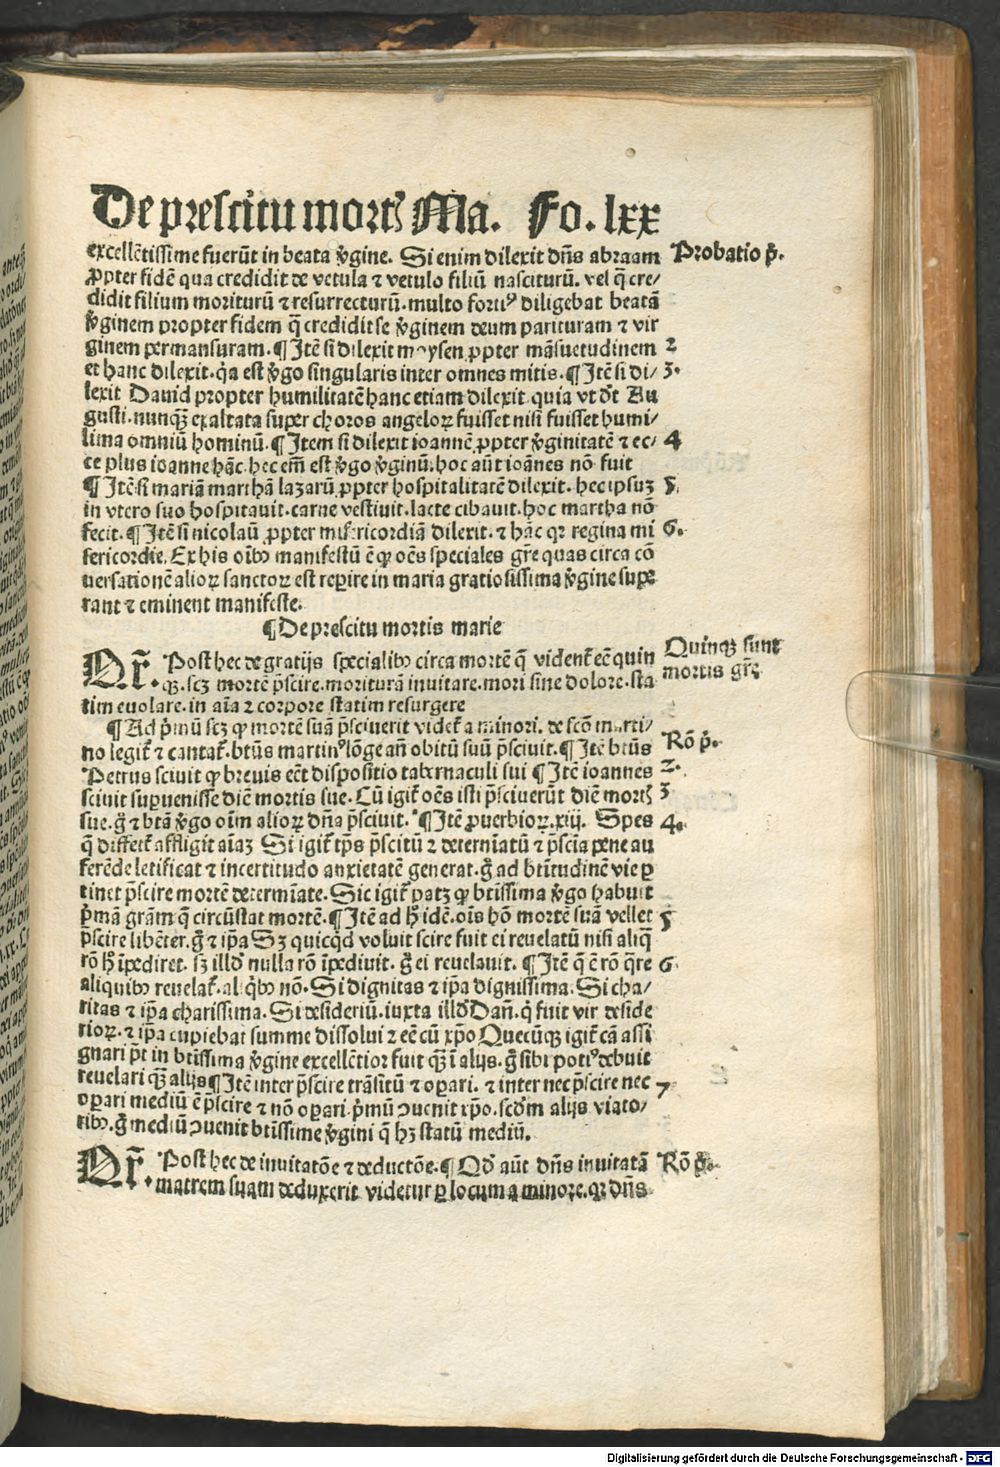 De prescitu mortꝭ Ma. Fo. lxx
excellẽtissime fuerũt in beata v̾gine. Si enim dilexit dñs abraam Probatio p̾.
ꝓpter fidẽ qua credidit de vetula ⁊ vetulo filiũ nasciturũ. vel q̃ cre/
didit filium moriturũ ⁊ resurrecturũ. multo fortiꝰ diligebat beatã
v̾ginem propter fidem q̃ credidit se v̾ginem deum parituram ⁊ vir
ginem permansuram. ¶ Itẽ si dilexit moysen ꝓpter mãsuetudinem 2
et hanc dilexit. q̃a est v̾go singularis inter omnes mitis. ¶ Itẽ si di/ 3.
lexit Dauid propter humilitatẽ hanc etiam dilexit quia vt dt̃ Au
gusti. nunqꝫ exaltata super choros angeloꝝ fuisset nisi fuisset humi/
lima omniũ hominũ. ¶ Item si dilexit ioannẽ ꝓpter v̾ginitatẽ ⁊ ec/ 4
ce plus ioanne hãc. hec em̃ est v̾go v̾ginũ. hoc aũt ioãnes nõ fuit
¶ Itẽ si mariã marthã lazarũ ꝓpter hospitalitatẽ dilexit. hec ipsuꝫ 5.
in vtero suo hospitauit. carne vestiuit. lacte cibauit. hoc martha nõ
fecit. ¶ Itẽ si nicolaũ ꝓpter misericordiã dilexit. ⁊ hãc qꝛ regina mi 6.
sericordie. Ex his oĩbꝰ manifestũ ẽ qꝫ oẽs speciales gr̃e quas circa cõ
uersationẽ alioꝝ sanctoꝝ est reperire in maria gratiosissima v̾gine supe
rant ⁊ eminent manifeste.
¶ De prescitu mortis marie
Qr̃. Post hec de gratijs specialibꝰ circa mortẽ q̃ vident̃ eẽ quin Quinqꝫ sunt
qꝫ. scꝫ mortẽ p̃scire. morituram inuitare. mori sine dolore. sta mortis gr̃e
tim euolare. in aĩa ⁊ corpore statim resurgere
¶ Ad p̾mũ scꝫ ꝙ mortẽ suã p̃sciuerit videt̃ a minori. de scõ marti/
no legit̃ ⁊ cantat̃. btũs martinꝰ lõge añ obitũ suũ p̃sciuit. ¶ Itẽ btũs Rõ p̾.
Petrus sciuit ꝙ breuis eẽt dispositio tabernaculi sui ¶ Itẽ ioannes 2.
sciuit superuenisse diẽ mortis sue. Cũ igit̃ oẽs isti p̃sciuerũt diẽ mortꝭ 3
sue. g̾ ⁊ btã v̾go oĩm alioꝝ dña p̃sciuit. ¶ Itẽ ꝓuerbioꝝ. xiij. Spes 4.
q̃ differt̃ affligit aĩaꝫ Si igit̃ tp̃s p̃scitũ ⁊ determĩatũ ⁊ p̃scia pene au
ferẽde letificat ⁊ incertitudo anxietatẽ generat. g̾ ad btĩtudinẽ vie ꝑ
tinet p̃scire mortẽ determĩate. Sic igit̃ patꝫ ꝙ btĩssima v̾go habuit
p̾mã grãm q̃ circũstat mortẽ. ¶ Itẽ ad h̾ idẽ. oĩs hõ mortẽ suã vellet 5
p̃scire libẽter. g̾ ⁊ ip̃a Sꝫ quicqͥd voluit scire fuit ei reuelatũ nisi aliq̃
rõ h̾ ĩpediret. sꝫ illd̾ nulla rõ ĩpediuit. g̾ ei reuelauit. ¶ Itẽ q̃ ẽ rõ q̃re 6.
aliquibꝰ reuelat̃. al qͥbꝰ nõ. Si dignitas ⁊ ip̃a dignissima. Si cha/
ritas ⁊ ip̃a charissima. Si desideriũ. iuxta illd̾ Dañ. qͥ fuit vir deside
rioꝝ. ⁊ ip̃a cupiebat summe dissolui ⁊ eẽ cũ xp̃o Quecũqꝫ igit̃ cã assi
gnari põt in btĩssima v̾gine excellẽtior fuit qꝫ ĩ alijs. g̾ sibi potiꝰ debuit
reuelari qꝫ alijs ¶ Itẽ inter p̃scire trãsitũ ⁊ oꝑari. ⁊ inter nec p̃scire nec 7
oꝑari mediũ ẽ p̃scire ⁊ nõ oꝑari. p̾mũ ꝯuenit xp̃o. scd̾m alijs viato/
ribꝰ. g̾ mediũ ꝯuenit btĩssime v̾gini q̃ hꝫ statũ mediũ.
Qr̃. Post hec de inuitatõe ⁊ deductõe. ¶ Qd̾ aũt dñs inuitatã Rõ p̾.
matrem suam deduxerit videtur ꝑ locum a minore. qꝛ dñs
Digitalisierung gefördert durch die Deutsche Forschungsgemeinschaft - DFG